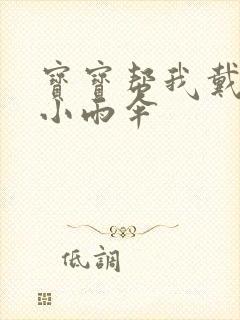 寶寶帮我戴
小雨伞
低調